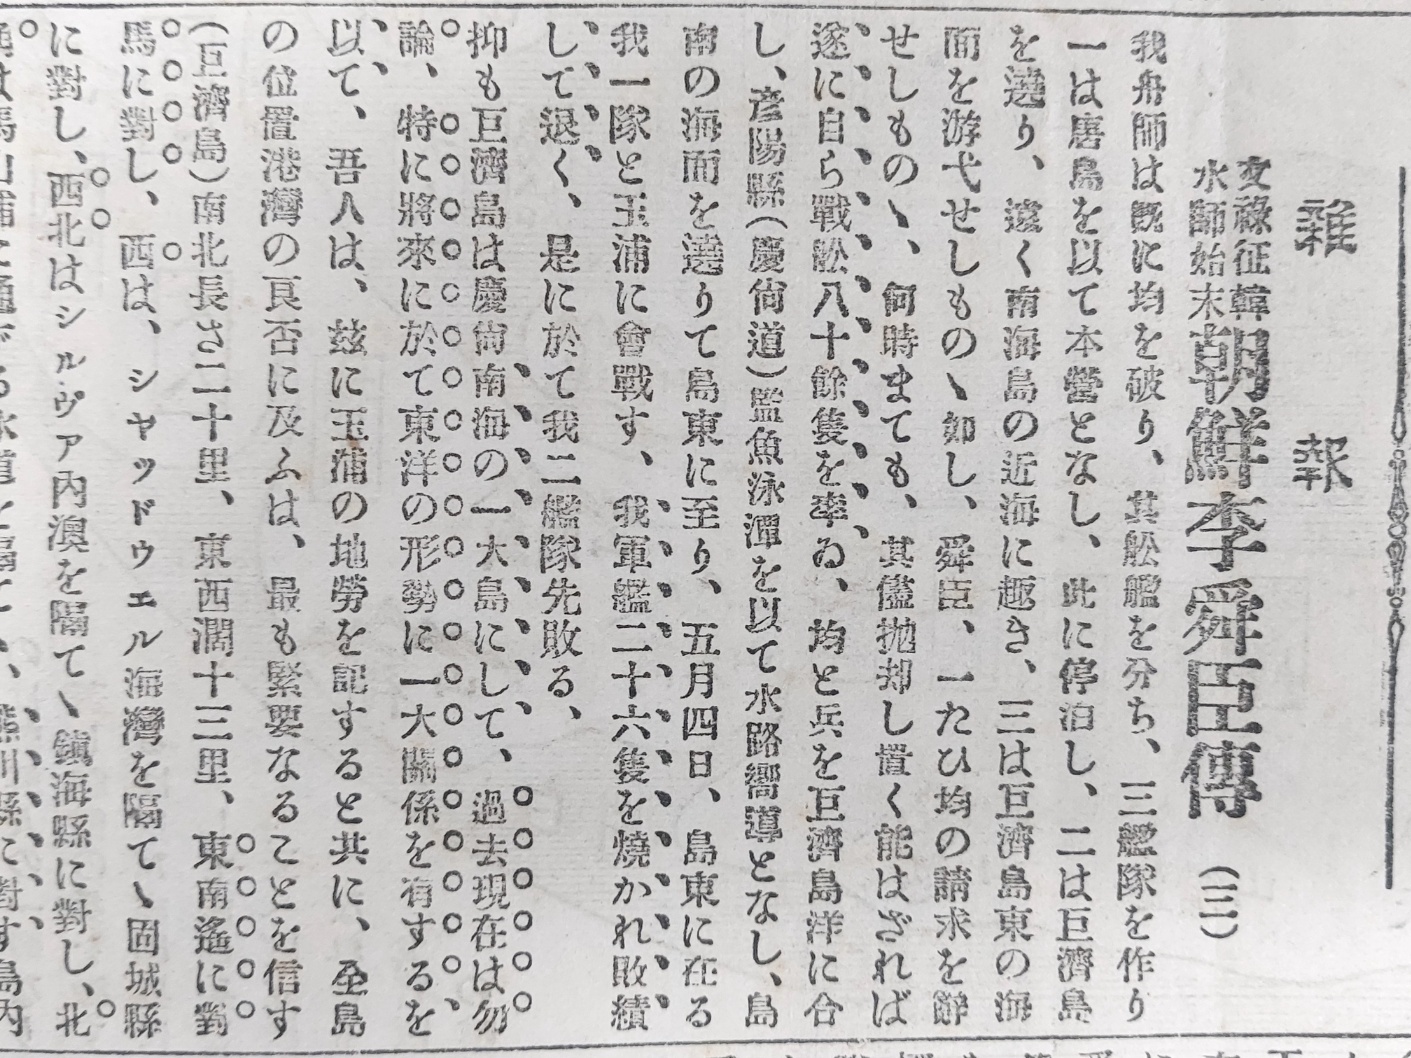 雜報
文祿征韓
水師始末
朝鮮李舜臣傳
(三)
我舟師は既に均を破り、其舩艦を分ち、三艦隊を作り
一は唐島を以て本營となし、此に停泊し、二は巨濟島
を遶り、遠く南海島の近海に趣き、三は巨濟島東の海
面を游弋せしものヽ如し、舜臣、一たひ均の請求を辭
せしものヽ、何時までも、其儘抛却し置く能はざれば
遂に自ら戰舩八十餘隻を率ゐ、均と兵を巨濟島洋に合
し、彦陽縣(慶尙道)監魚泳潭を以て水路嚮導となし、島
南の海面を遶りて島東に至り、五月四日、島東に在る
我一隊と玉浦に會戰す、我軍艦二十六隻を燒かれ敗績
して退く、是に於て我二艦隊先敗る、
抑も巨濟島は慶尙南海の一大島にして、過去現在は勿
論、特に將來に於て東洋の形勢に一大關係を有するを
以て、吾人は、玆に玉浦の地勞を記すると共に、全島
の位置港灣の良否に及ふは、最も緊要なることを信す
(巨濟島)南北長さ二十里、東西濶十三里、東南遙に對
馬に對し、西は、シャッドウェル海灣を隔てヽ固城縣
に對し、西北はシルヴァ內澳を隔てヽ鎭海縣に對し、北